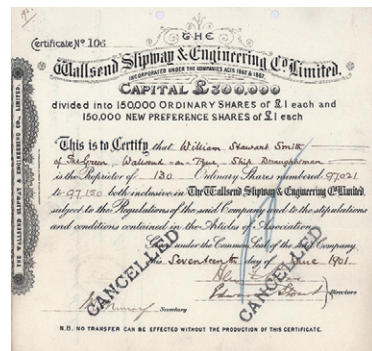 THE
Certificate No 106
Wallsend Slipway & Engineering Co Limited.
INCORPORATED UNDER THE COMPANIES ACTS 1862 & 1867.
CAPITAL £300,000
divided into 150,000 ORDINARY SHARES of £1 each and
150,000 NEW PREFERENCE SHARES of £1 each
This is to Certify that William Steward Smith
of The Green, Wallsend-on-Tyne, Ship Draughtsman
is the Proprietor of 130 Ordinary Shares numbered 97021
to 97,150 both inclusive in The Wallsend Slipway & Engineering Co Limited.
subject to the Regulations of the said Company and to the stipulations
and conditions contained in the Articles of Association
Given under the Common Seal of the said Company
this Seventeenth day of June 1901
CANCELLED
CANCELLED
Directors
Secretary
N.B. NO TRANSFER CAN BE EFFECTED WITHOUT THE PRODUCTION OF THIS CERTIFICATE.
THE WALLSEND SLIPWAY & ENGINEERING CO., LIMITED.